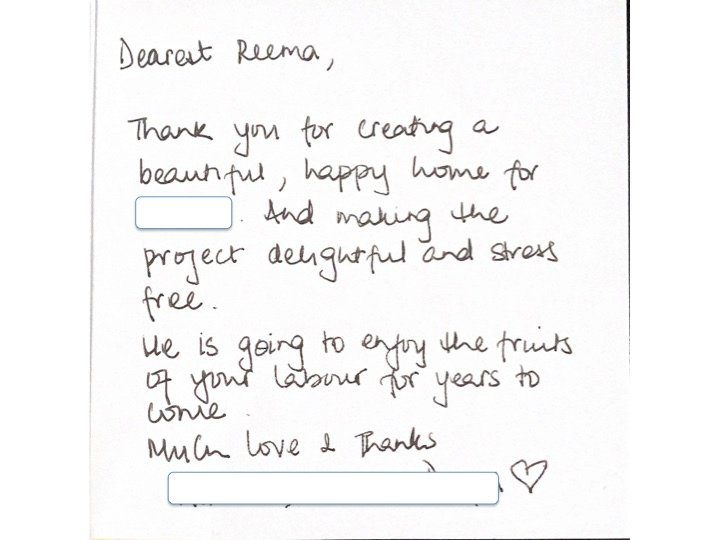 Dearest Reema,
Thank you for creating a
beautiful, happy home for
. And making the
project delightful and stress
free.
He is going to enjoy the fruits
of your labour for years to
come.
Much love & Thanks